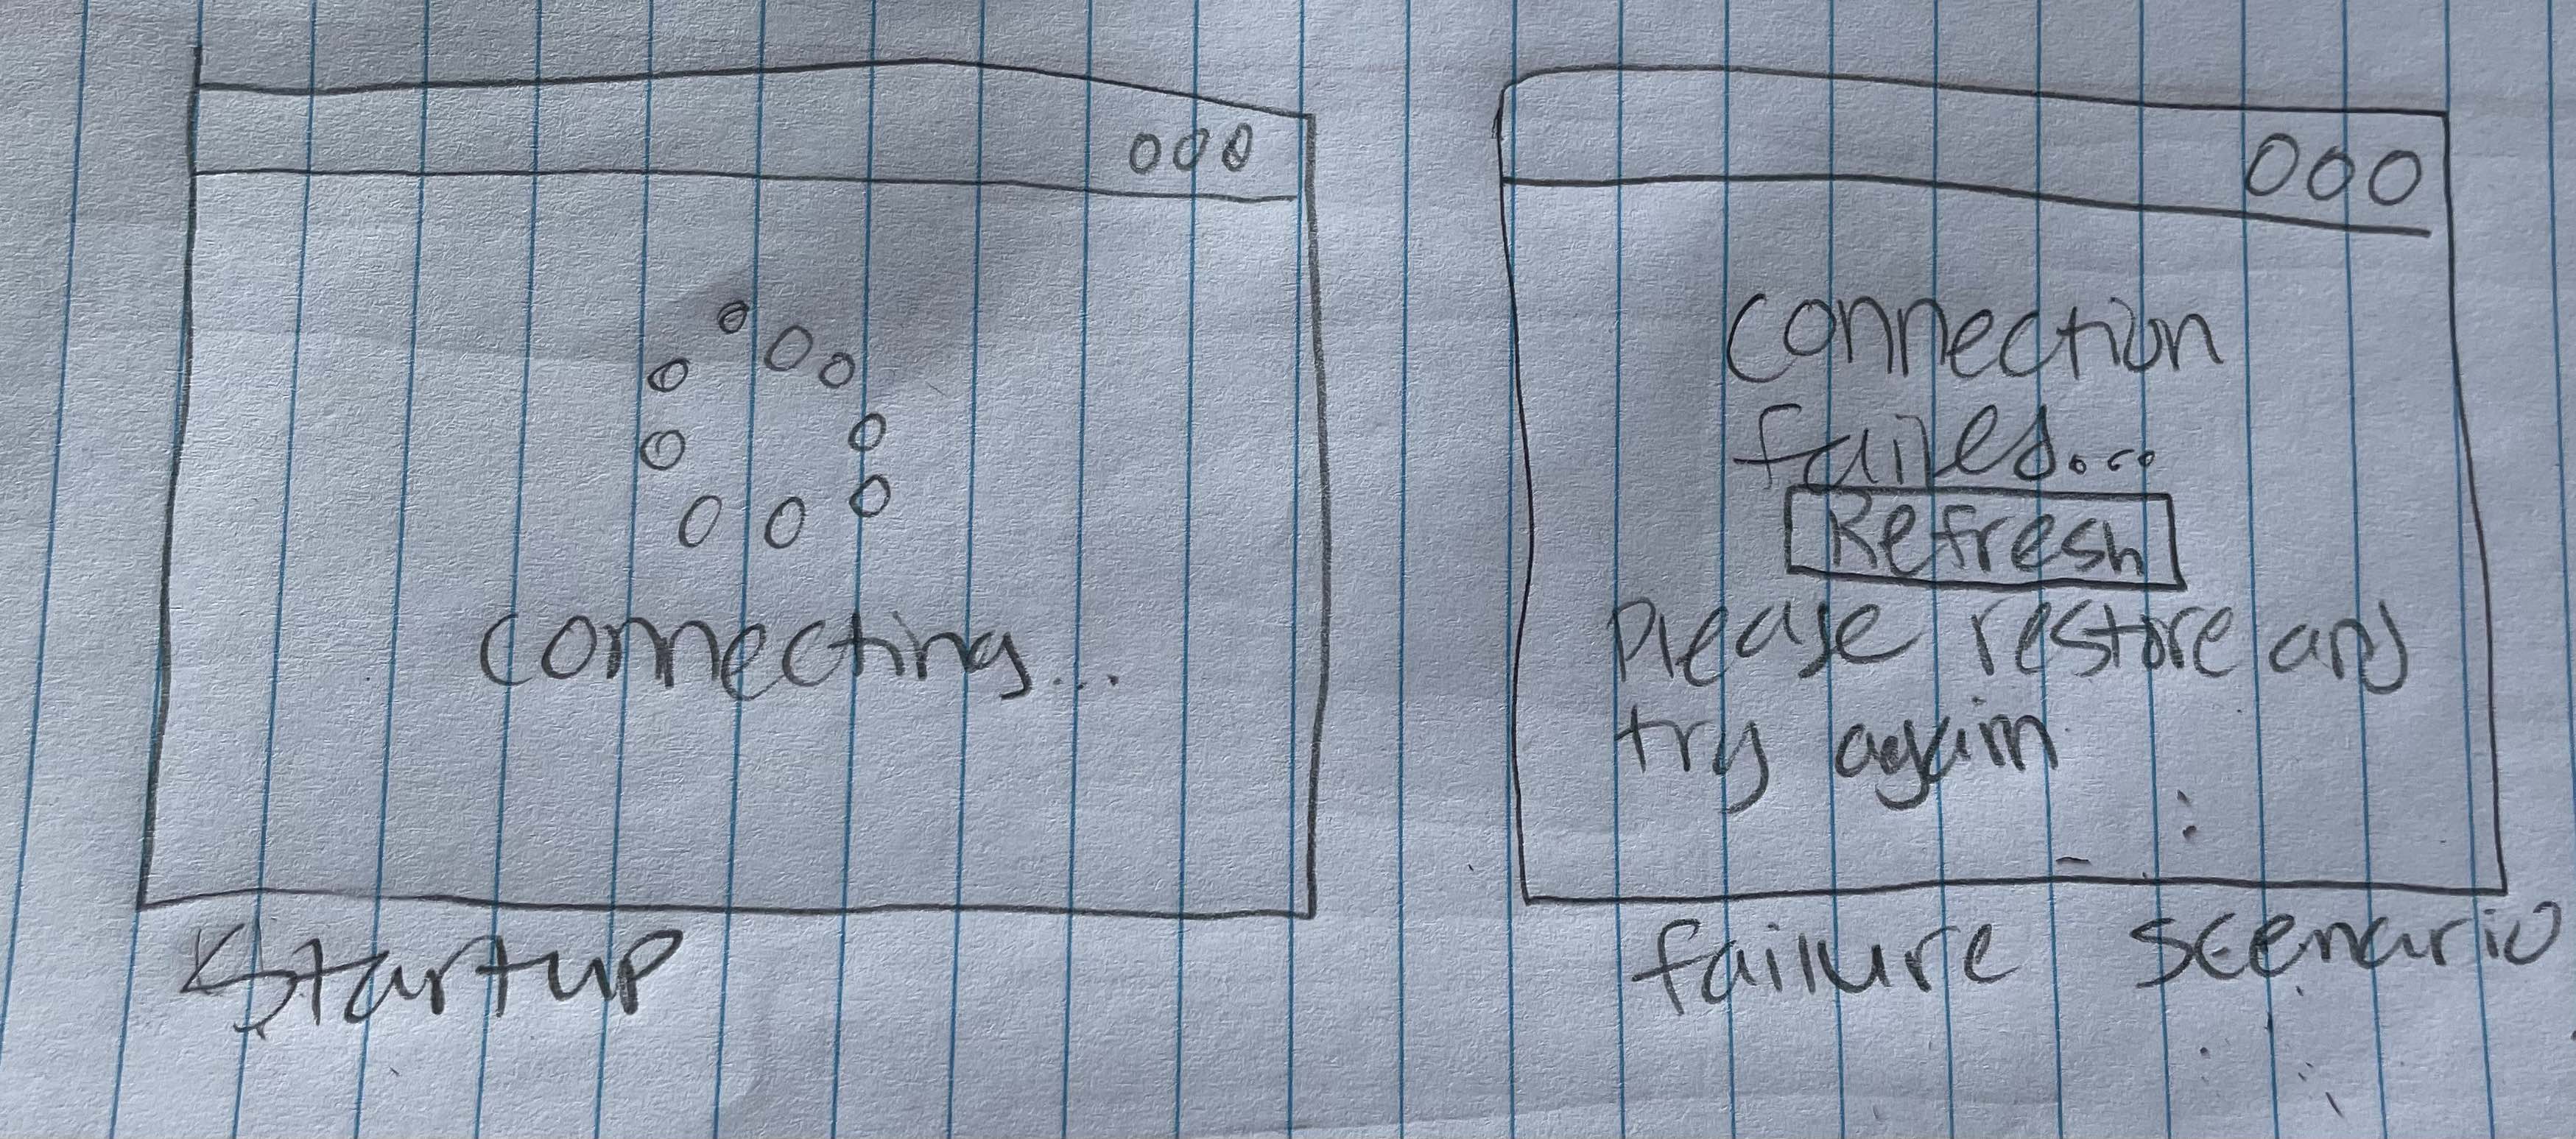 connecting...
Startup
connection
failed...
Refresh
please restore and
try again
failure scenario